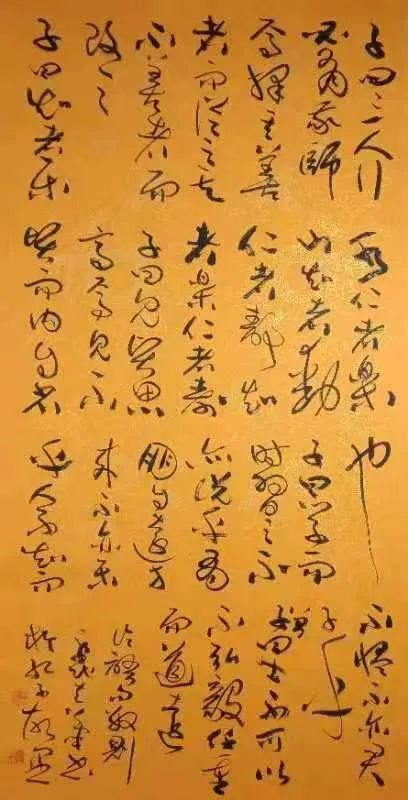 子曰三人行
必有我師
焉擇其善
者而從之其
不善者而
改之
子曰知者樂
水仁者樂
山知者動
仁者靜知
者樂仁者壽
子曰見賢思
齊焉見不
賢而內自省
也
子曰學而
時習之不
亦說乎有
朋自遠方
來不亦樂
乎人不知而
不愠不亦君
子乎
曾子曰士不可以
不弘毅任重
而道遠